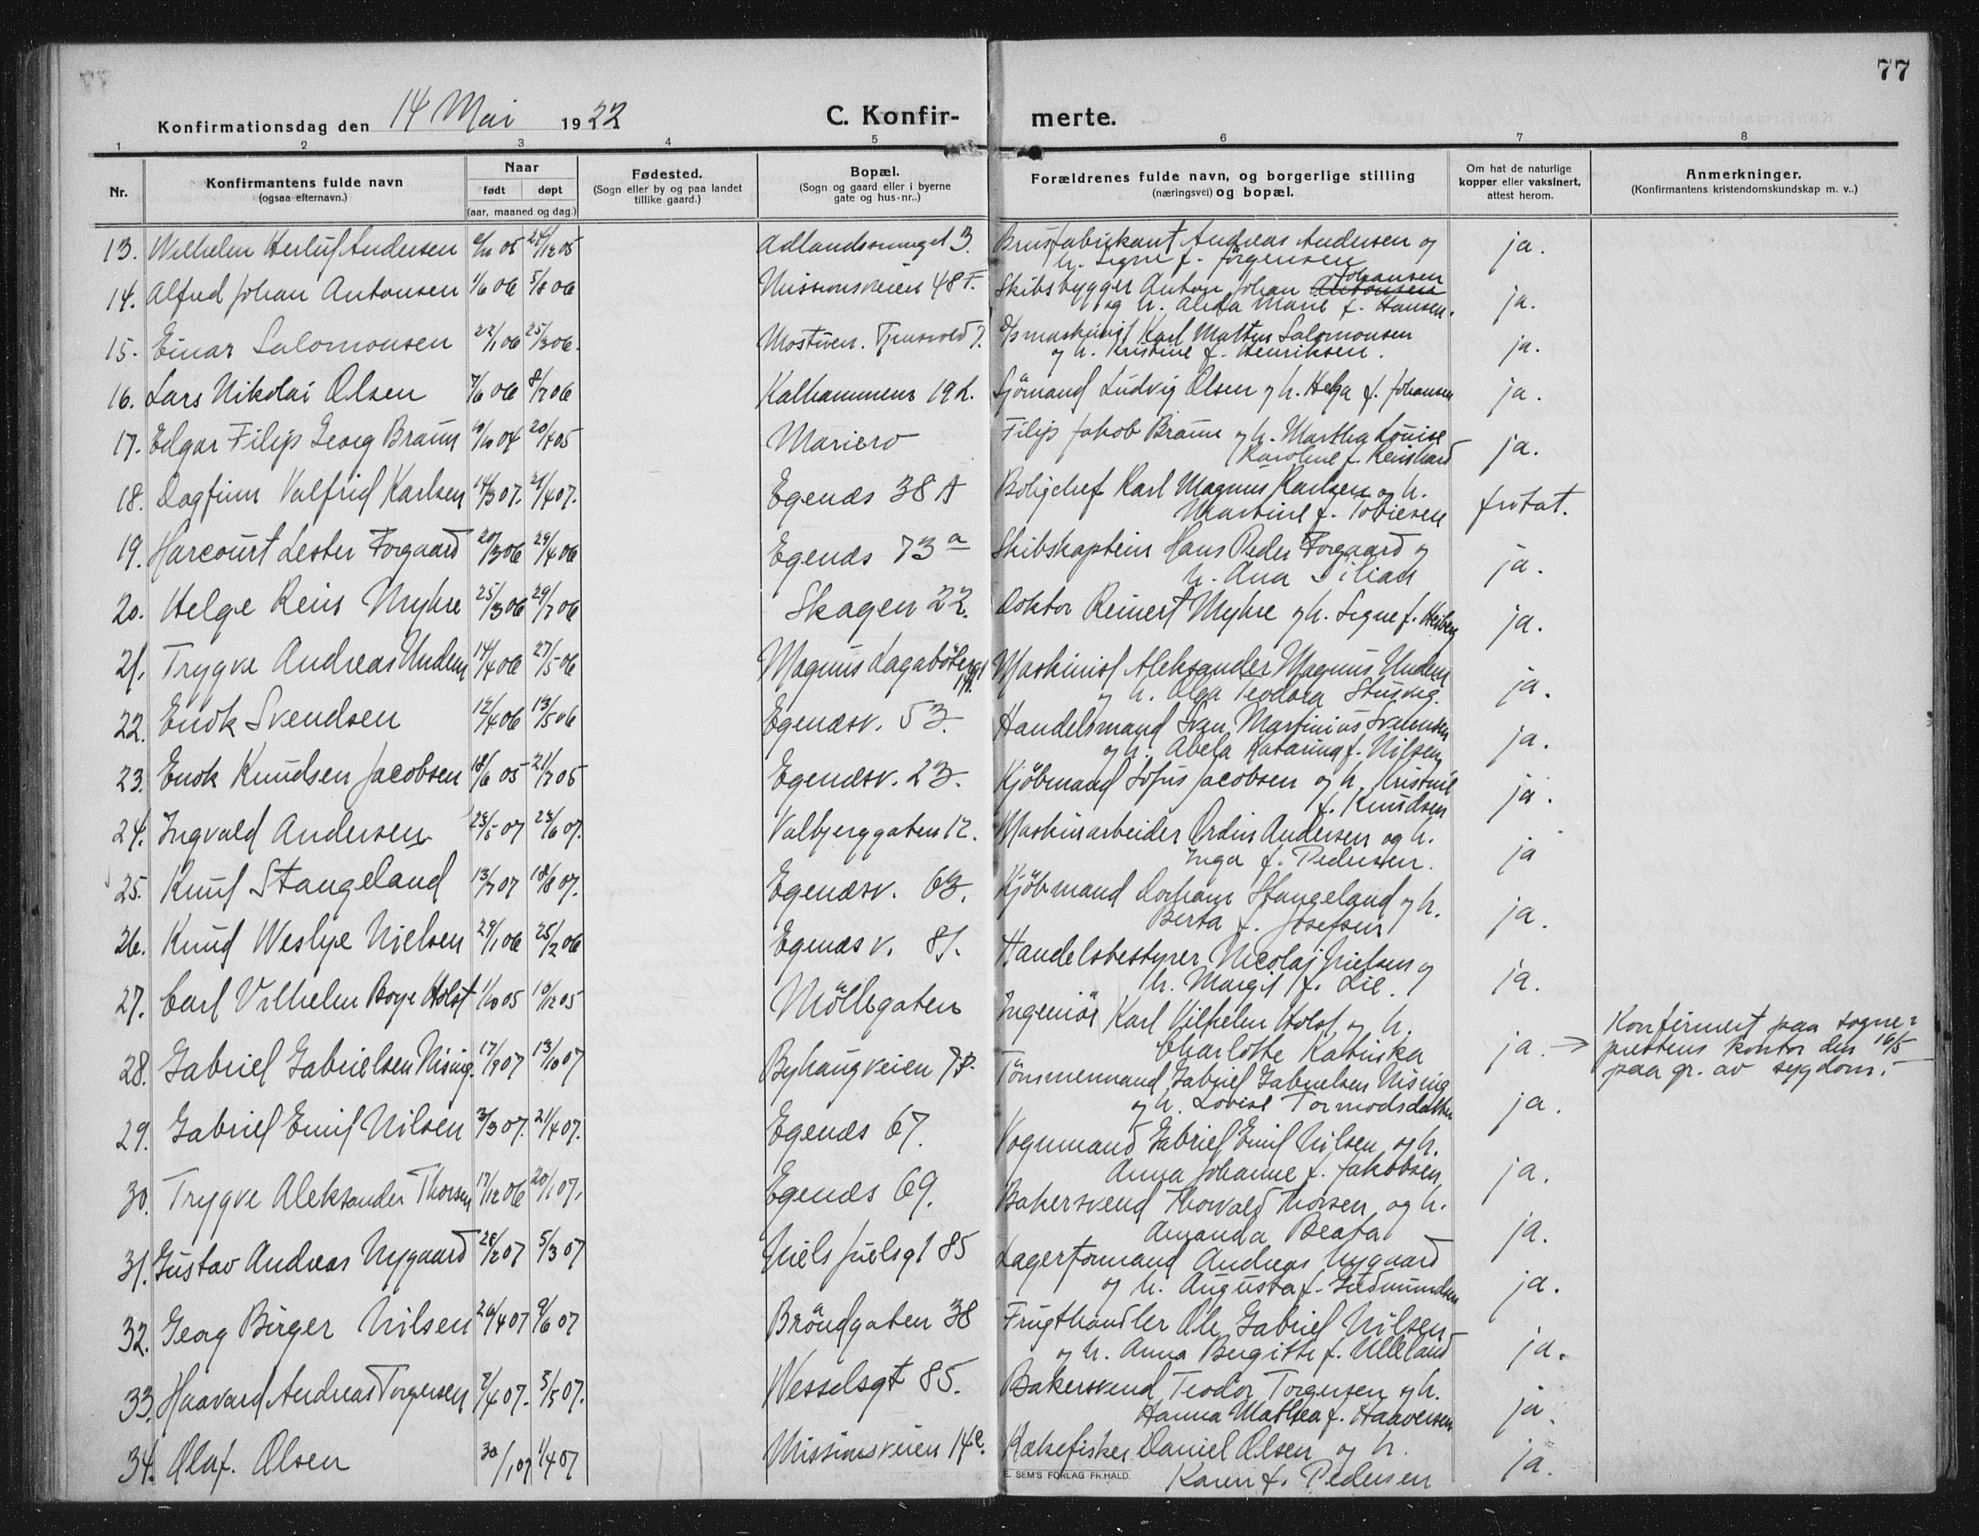 77
Konfirmationsdag den 14 Mai 1922 C. Konfir- merte.
1 2 3 4 5 6 7 8
Nr.
Konfirmantens fulde navn
(ogsaa efternavn.)
Naar
født døpt
(aar, maaned og dag.)
Fødested.
(Sogn eller by og paa landet
tillike gaard.)
Bopæl.
(Sogn og gaard eller i byerne
gate og hus-nr.)
Forældrenes fulde navn, og borgerlige stilling
(næringsvei) og bopæl.
Om hat de naturlige
kopper eller vaksinert,
attest herom.
Anmerkninger.
(Konfirmantens kristendomskundskap m. v..)
13. Wilhelm Herluf Andersen 24/12 05 3. Brusfabrikant Andreas Andersen og ja.
h. Signe f. Jörgensen
14. Alfred Johan Antonsen 1/6 06 5/8 06 Missionsveien 48 F. Skibsbygger Anton Johan Antonsen Johansen
og h. Alida Marie f. Hansen. ja.
15. Einar Salomonsen 22/1 06 25/3 06. Karl Mattin Salomonsen
og h. Kristine f. Henriksen. ja.
16. Lars Nikolai Olsen 7/6 06 8/7 06 Kalhammeren 19 Sjömand Ludvig Olsen og h. Helga f. Johansen ja.
17. Edgar Filip Georg Braun 20/4 05 Mariero Filip Jakob Braun og h. Martha Louise
Karoline f. ja.
18. Dagfinn Valfrid Karlsen 14/3 07. 21/4 07. Egenæs 38 A Karl Magnus Karlsen og h.
Martine f. Tobiesen fritat.
19. Harcourt Lester Forgaard 20/3 06 29/4 06 Egenæs 73 a Skibskaptein Hans Peder Forgaard og
h. Ana ja.
20. Helge Rein Myhre 25/3 06 29/7 06 Skagen 22. Doktor Reinert Myhre og h. Signe f. Heiberg ja.
21. Trygve Andreas Undem 14/4 06 27/5 06 Magnus Lagabötersgt Maskinist Aleksander Magnus Undem
og h. Olga Teodora ja.
22. Enok Svendsen 12/4 06 13/5 06 Egenæsv. 53. Handelsmand Sven Martinius Svendsen
og h. Abela Katarina f. Nilsen ja.
23. Enok Knudsen Jacobsen 18/6 05 21/7 05 Egenæsv. 23. Kjöbmand Sofus Jacobsen og h. Kristine
f. Knudsen ja.
24. Ingvald Andersen 23/5 07 23/6 07. Valbjerggaten 12. Maskinarbeider Andersen og h.
Inga f. Pedersen. ja
25. Knut Stangeland 13/7 07 18/8 07. Egenæsv. 63. Kjöbmand Stangeland og h.
Berta f. Josefsen ja.
26. Knud Weslye Nielsen 29/1 06 25/2 06 Egenæsv. 81. Handelsbestyrer Nicolaj Nielsen og
h. Margit f. Lie. ja.
27. Carl Vilhelm Boye Holst 10/12 05 Möllegaten Ingeniör Karl Vilhelm Holst og h.
Charlotte Katinka ja. → Konfirmert paa sogne-
prestens kontor den 16/5
paa gr. av sygdom.
28. Gabriel Gabrielsen Nising 13/10 07 Byhaugveien Tömmermand Gabriel Gabrielsen Nising
og h. Lovise Tormodsdatter ja.
29. Gabriel Emil Nilsen 3/3 07. 21/4 07. Egenæs 67. Vognmand Gabriel Emil Nilsen og h.
Anna Johanne f. Jakobsen ja.
30. Trygve Aleksander Thorsen 17/12 06 20/1 07. Egenæs 69. Bakersvend Thorvald Thorsen og h.
Amanda Beata ja.
31. Gustav Andreas Nygaard 5/3 07 Niels Juelsgt 85 Lagerformand Andreas Nygaard
og h. Augusta f. Gudmundsen ja.
32. Georg Birger Nilsen 26/4 07 9/6 07 Bröndgaten 38 Frugthandler Ole Gabriel Nilsen
og h. Anna Bergitte f. Ulleland ja.
33. Haavard Andreas Torgersen 5/5 07. Wesselsgt 85. Bakersvend Teodor Torgersen og h.
Hanna Mathea f. Haaversen ja.
34. Olaf. Olsen 30/1 07 1/4 07 Missionsveien 14 e. Rækefisker Daniel Olsen og h.
Karen f. Pedersen ja.
E. SEM'S FORLAG FR.HALD.